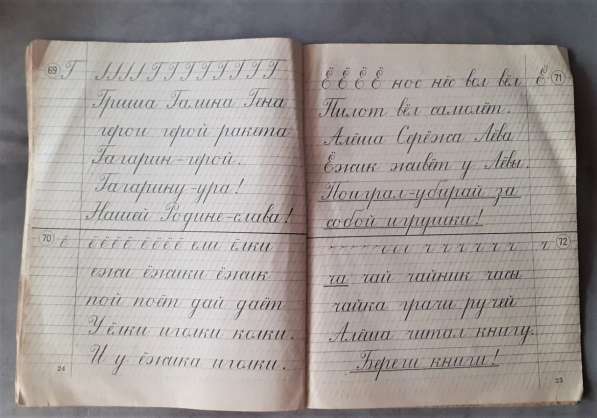 69 Г I I I I Г Г Г Г Г Г Г Г
Гриша Галина Гена
герои герой ракета
Гагарин-герой.
Гагарину-ура!
Нашей Родине-слава!
70 ё ё ё ё ё ё ё ё ё ели ёлки
ежи ёжики ёжик
пой поёт дай даёт
У ёлки иголки колки.
И у ёжика иголки.
24
Ё Ё Ё Ё нос нёс вол вёл Ё 71
Пилот вёл самолёт.
Алёша Серёжа Лёва
Ёжик живёт у Лёвы.
Поиграл-убирай за
собой игрушки!
ч ч ч ч ч ч ч 72
ча чай чайник часы
чайка грачи ручей
Алёша читал книгу.
Береги книги!